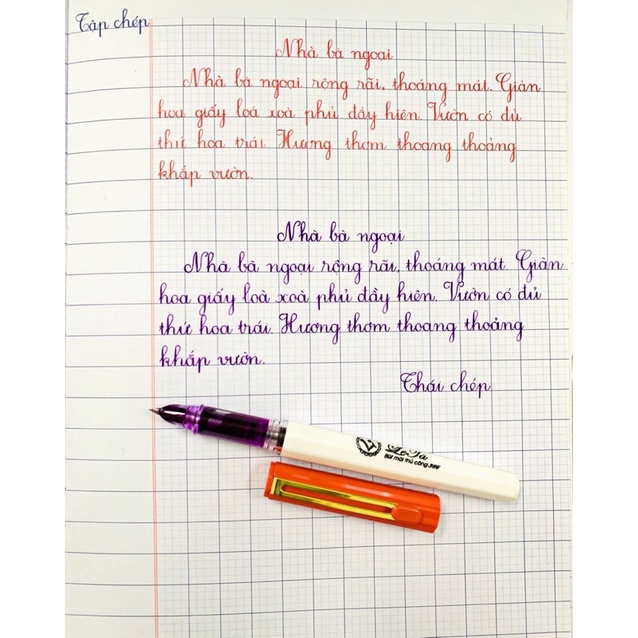 Tập chép
Nhà bà ngoại
Nhà bà ngoại rộng rãi, thoáng mát. Giàn
hoa giấy loà xoà phủ đầy hiên. Vườn có đủ
thứ hoa trái. Hương thơm thoang thoảng
khắp vườn.
Nhà bà ngoại
Nhà bà ngoại rộng rãi, thoáng mát. Giàn
hoa giấy loà xoà phủ đầy hiên. Vườn có đủ
thứ hoa trái. Hương thơm thoang thoảng
khắp vườn.
Thái chép
Bút mài thủ công